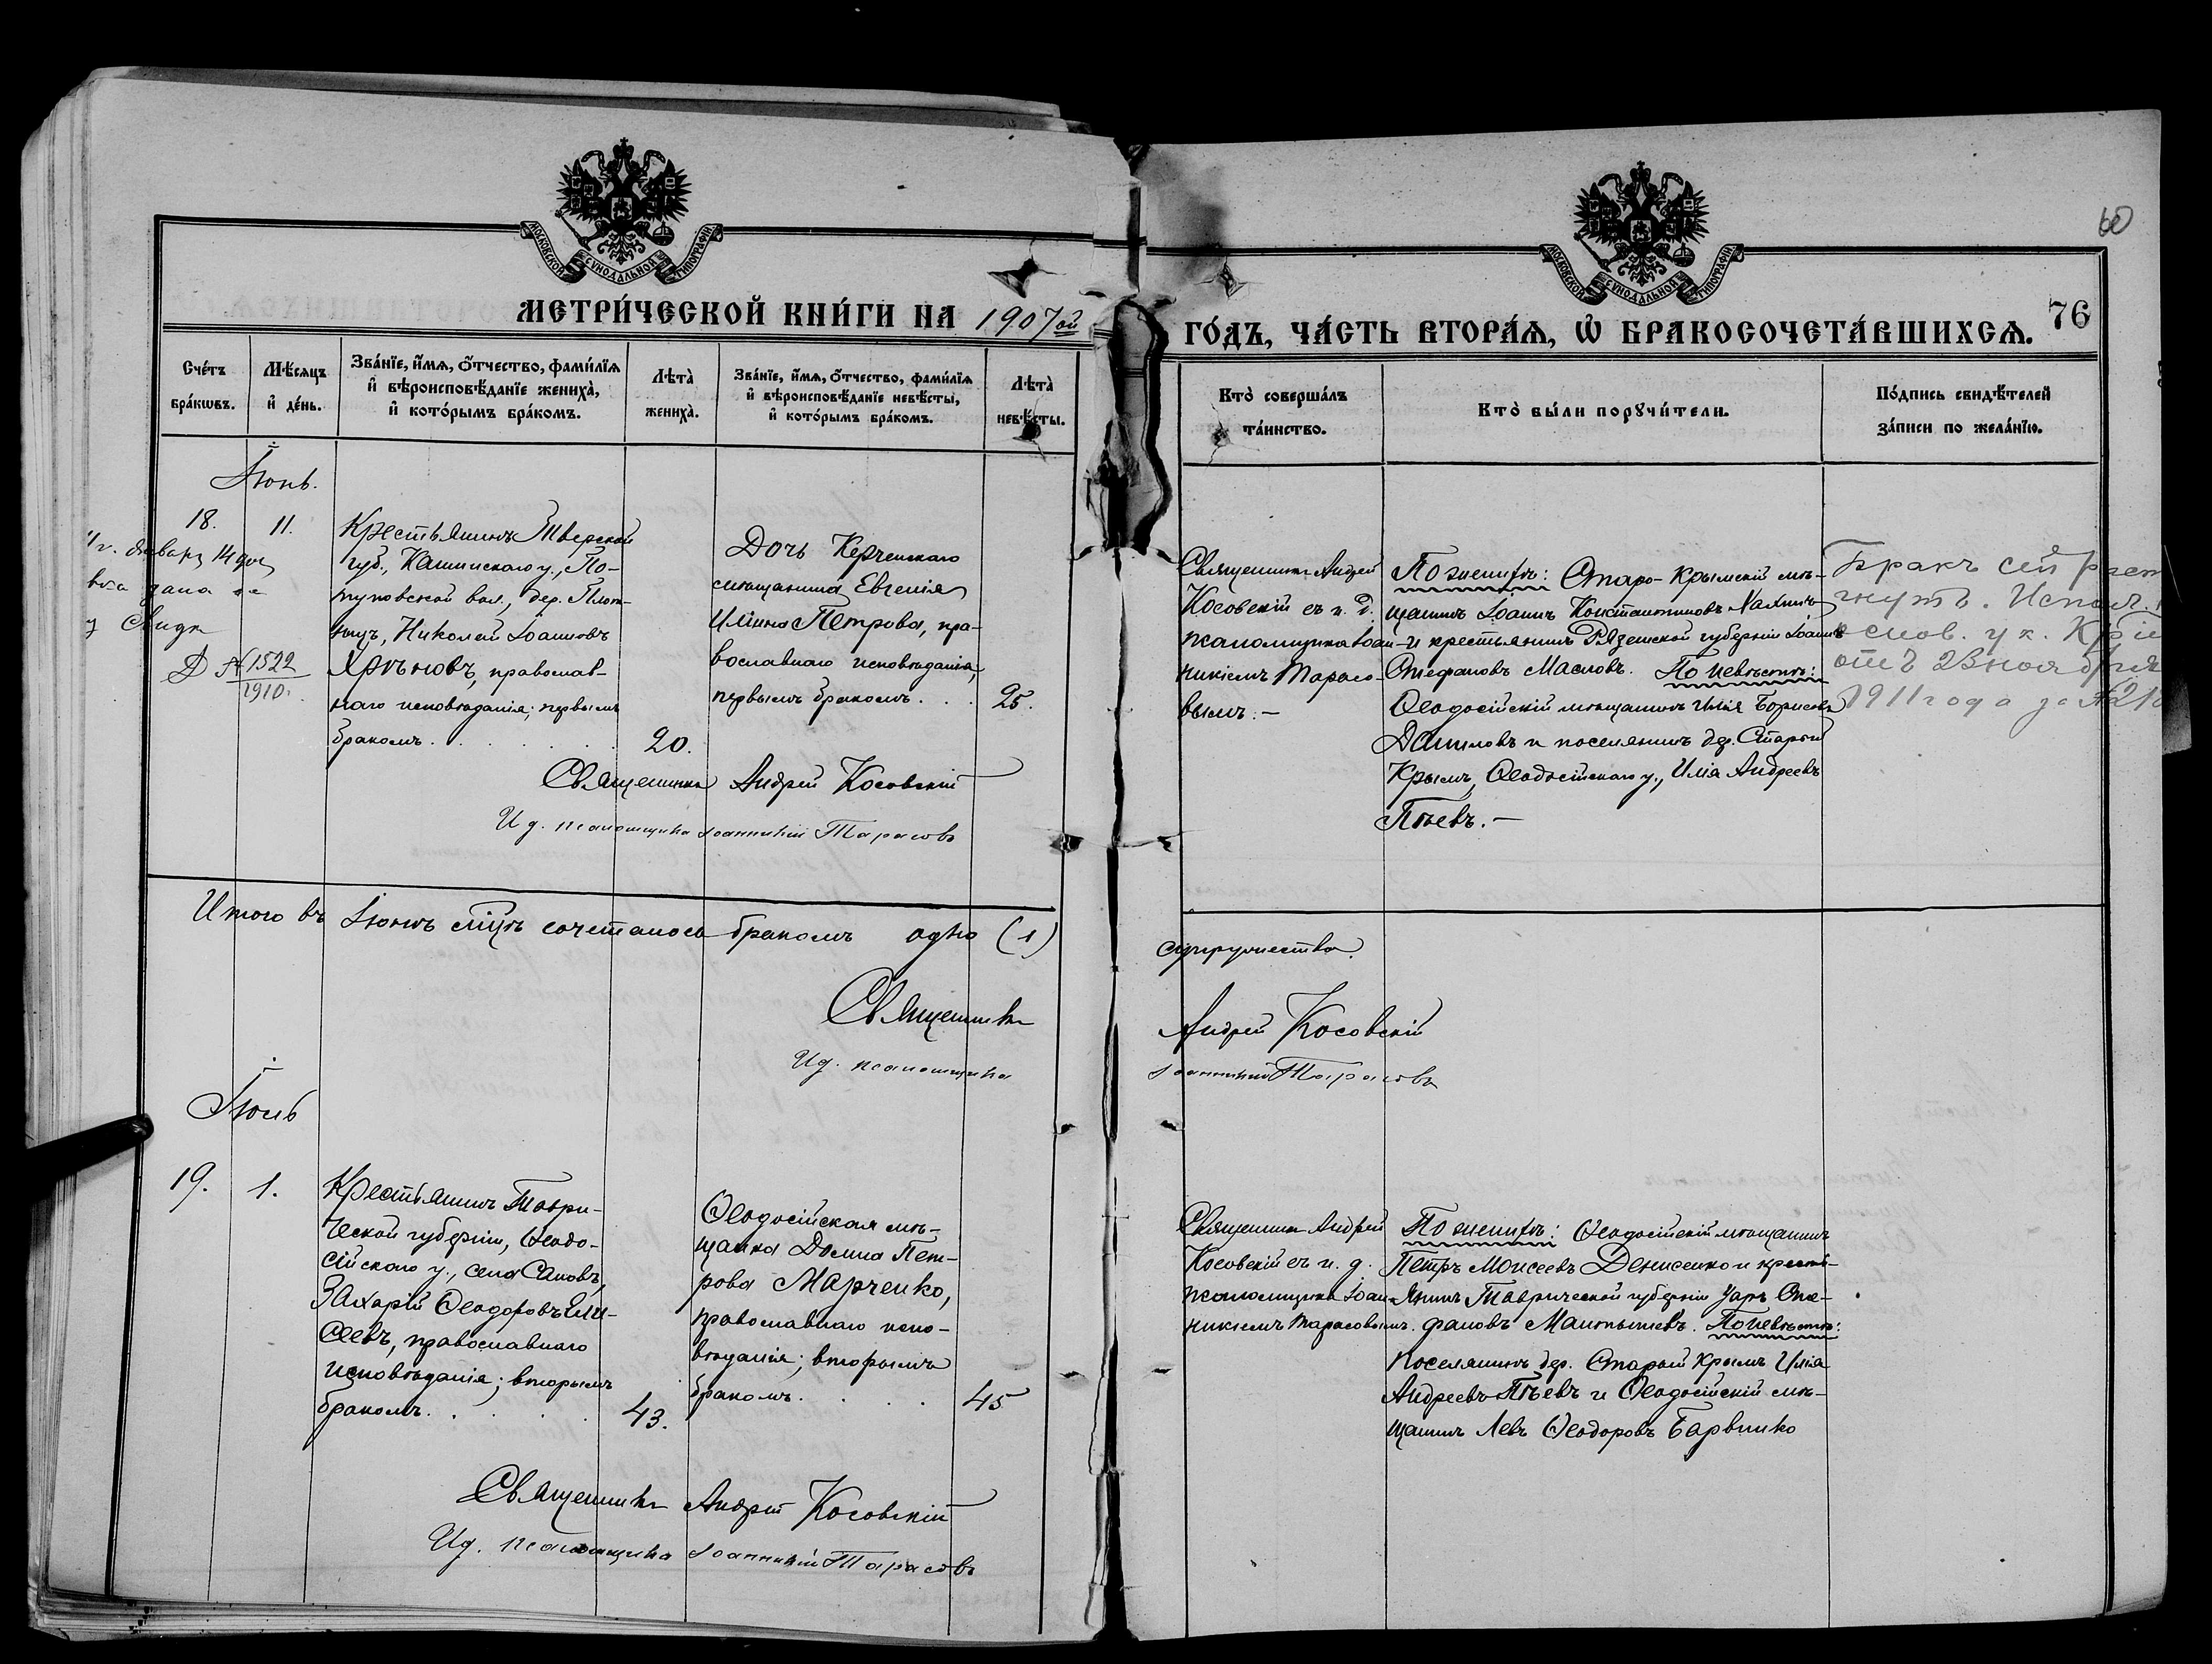 МОСКОВСКОЙ СУНОДАЛЬНОЙ ТИПОГРАФІИ
МЕТРИ́ЧЕСКОЙ КНИ́ГИ НА 1907ой
Сче́тъ бра́кωвъ.
Мѣ́сяцъ и҆ де́нь.
Зва́нїе, и҆́мѧ, ѻ҆́тчество, фами́лїѧ
и҆ вѣроисповѣ́данїе жениха̀,
и҆ кото́рымъ бра́комъ.
Лѣта̀
жениха̀.
Зва́нїе, и҆́мѧ, ѻ҆́тчество, фами́лїѧ
и҆ вѣроисповѣ́данїе невѣ́сты,
и҆ кото́рымъ бра́комъ.
Лѣта̀
невѣ́сты.
Іюнь.
18.
11.
Января 14 дня
Свид
Д № 1522
1910г.
Крестьянинъ Тверской
губ., Кашинскаго у., По-
туповской вол., дер. Плот-
ницъ, Николай Іоанновъ
Хрѣновъ, православ-
наго исповѣданія; первымъ
бракомъ.
20.
Дочь Керченскаго
мѣщанина Евгенія
Иліина Петрова, пра-
вославнаго исповѣданія,
первымъ бракомъ.
25.
Священникъ Андрей Косовскій
И д. псаломщика Іоанникій Тарасовъ
Итого въ Іюнѣ мѣцѣ сочеталось бракомъ одно (1)
Священникъ
И д. псаломщика
Іюль
19.
1.
Крестьянинъ Таври-
ческой губерніи, Ѳеодо-
сійскаго у., села Саловъ,
Захарій Ѳеодоровъ Ели-
сеевъ, православнаго
исповѣданія; вторымъ
бракомъ.
43.
Ѳеодосійская мѣ-
щанка Домна Пет-
рова Марченко,
православнаго испо-
вѣданія; вторымъ
бракомъ.
45
Священникъ Андрей Косовскій
И д. псаломщика Іоанникій Тарасовъ
60
МОСКОВСКОЙ СУНОДАЛЬНОЙ ТИПОГРАФІИ
ГО́ДЪ, ЧА́СТЬ ВТОРА́Ѧ, Ѽ БРАКОСОЧЕТА́ВШИХСѦ.
76
Кто̀ соверша́лъ
та́инство.
Кто̀ бы́ли порꙋчи́тели.
По́дпись свидѣ́телей
за́писи по жела́нїю.
Священникъ Андрей
Косовскій съ и. д.
псаломщика Іоан-
никіемъ Тарасо-
вымъ. —
По женихѣ: Старо-Крымскій мѣ-
щанинъ Іоаннъ Константиновъ
и крестьянинъ Рязенской губерніи Іоаннъ
Стефановъ Масловъ. По невѣстѣ:
Ѳеодосійскій мѣщанинъ Илія Борисовъ
Даниловъ и поселянинъ дер. Старый
Крымъ, Ѳеодосійскаго у., Илія Андреевъ
Пѣевъ. —
Бракъ сей раст
гнутъ. Испол.
основ. ук.
отъ 23 ноября
1911 года за № 21
супружество.
Андрей Косовскій
Іоанникій Тарасовъ
Священникъ Андрей
Косовскій съ и. д.
псаломщика Іоан-
никіемъ Тарасовымъ.
По женихѣ: Ѳеодосійскій мѣщанинъ
Петръ Моисеевъ Денисенко и кресть-
янинъ Таврической губерніи Уаръ Сте-
фановъ По невѣстѣ:
поселянинъ дер. Старый Крымъ Илія
Андреевъ Пѣевъ и Ѳеодосійскій мѣ-
щанинъ Левъ Ѳеодоровъ Барвинко